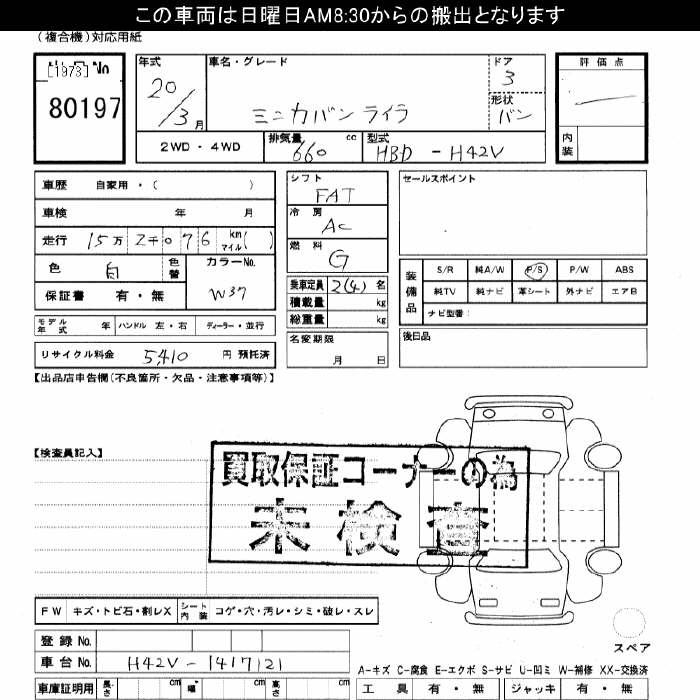 この車両は日曜日AM8:30からの搬出となります
(複合機)対応用紙
[1973] No
80197
年式
20/3月
車名・グレード
ミニカバン ライラ
ドア
3
形状
バン
評価点
内装
2WD・4WD
排気量 660 cc
型式 HBD-H42V
車歴 自家用・( )
車検 年 月
走行 15万2千076 km マイル( )
色 白 色替
カラーNo. W37
保証書 有・無
モデル年式 年 ハンドル 左・右 ディーラー・並行
リサイクル料金 5,410 円 預託済
シフト
FAT
冷房
AC
燃料
G
乗車定員 2(4)名
積載量 kg
総重量 kg
名変期限
月 日
セールスポイント
装備品
S/R 純A/W P/S P/W ABS
純TV 純ナビ 革シート 外ナビ エアB
ナビ型番:
後日品
【出品店申告欄(不良箇所・欠品・注意事項等)】
【検査員記入】
買取保証コーナーの為
未検査
FW キズ・トビ石・割レX シート内装 コゲ・穴・汚レ・シミ・破レ・スレ
登録No.
車台No. H42V-1417121
車庫証明用 長さ cm 幅 cm 高さ cm
スペア
A-キズ C-腐食 E-エクボ S-サビ U-凹ミ W-補修 XX-交換済
工具 有・無 ジャッキ 有・無